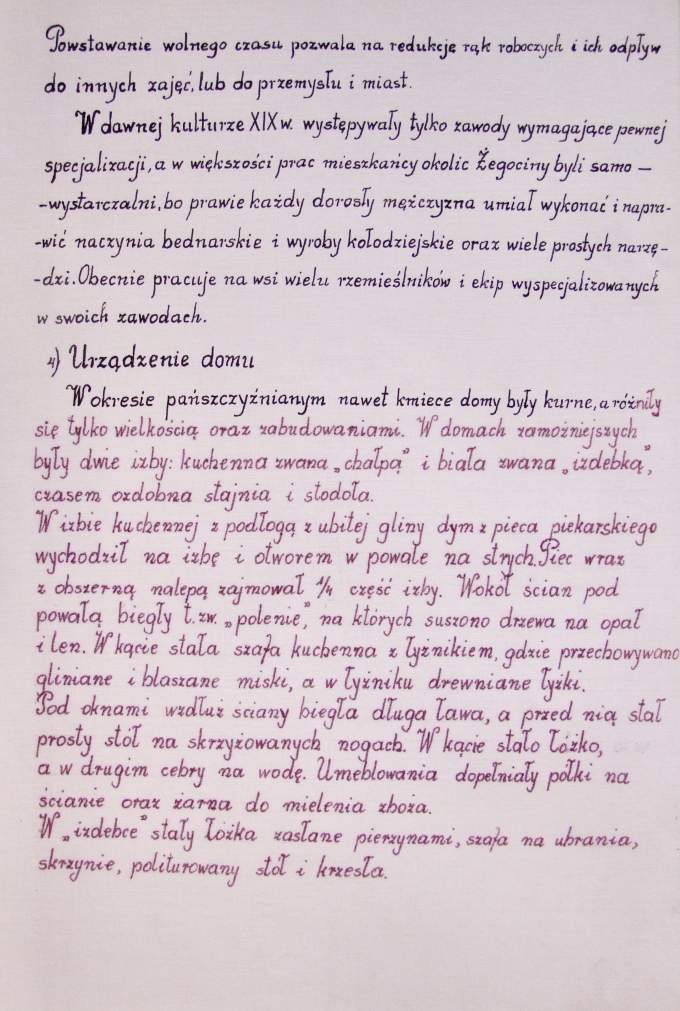 Powstawanie wolnego czasu pozwala na redukcję rąk roboczych i ich odpływ
do innych zajęć, lub do przemysłu i miast.
W dawnej kulturze XIX w. występywały tylko zawody wymagające pewnej
specjalizacji, a w większości prac mieszkańcy okolic Żegociny byli samo –
-wystarczalni, bo prawie każdy dorosły mężczyzna umiał wykonać i napra-
-wić naczynia bednarskie i wyroby kołodziejskie oraz wiele prostych narzę-
-dzi. Obecnie pracuje na wsi wielu rzemieślników i ekip wyspecjalizowanych
w swoich zawodach.
4) Urządzenie domu
W okresie pańszczyźnianym nawet kmiece domy były kurne, a różniły
się tylko wielkością oraz zabudowaniami. W domach zamożniejszych
były dwie izby: kuchenna zwana „chałpą" i biała zwana „izdebką",
czasem ozdobna stajnia i stodoła.
W izbie kuchennej z podłogą z ubitej gliny dym z pieca piekarskiego
wychodził na izbę i otworem w powale na strych. Piec wraz
z obszerną nalepą zajmował 1/4 część izby. Wokół ścian pod
powałą biegły t.zw. „polenie", na których suszono drzewa na opał
i len. W kącie stała szafa kuchenna z łyżnikiem, gdzie przechowywano
gliniane i blaszane miski, a w łyżniku drewniane łyżki.
Pod oknami wzdłuż ściany biegła długa ława, a przed nią stał
prosty stół na skrzyżowanych nogach. W kącie stało łóżko,
a w drugim cebry na wodę. Umeblowania dopełniały półki na
ścianie oraz żarna do mielenia zboża.
W „izdebce" stały łóżka zasłane pierzynami, szafa na ubrania,
skrzynie, politurowany stół i krzesła.